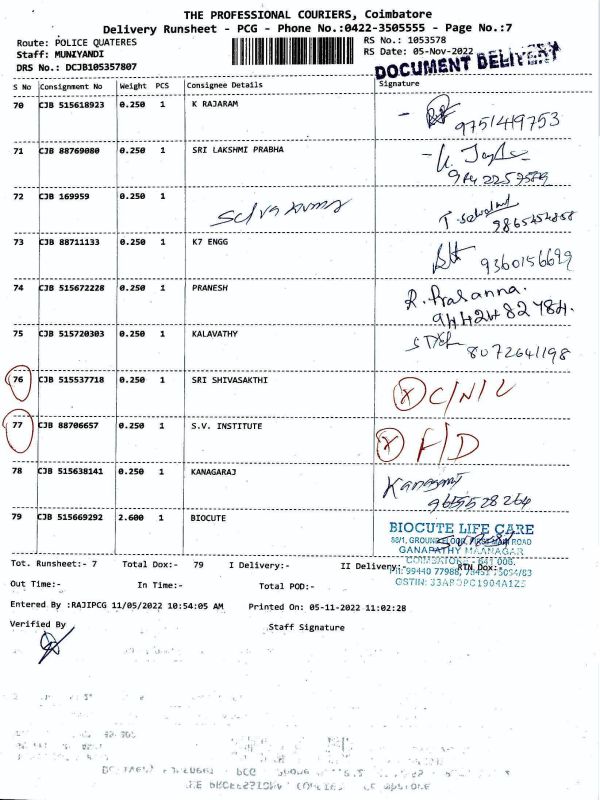 THE PROFESSIONAL COURIERS, Coimbatore
Delivery Runsheet - PCG - Phone No.:0422-3505555 - Page No.:7
Route: POLICE QUATERES
RS No.: 1053578
Staff: MUNIYANDI
RS Date: 05-Nov-2022
DRS No.: DCJB105357807
DOCUMENT DELIVERY
S No Consignment No Weight PCS Consignee Details Signature
70 CJB 515618923 0.250 1 K RAJARAM
9751419753
71 CJB 88769080 0.250 1 SRI LAKSHMI PRABHA
72 CJB 169959 0.250 1
73 CJB 88711133 0.250 1 K7 ENGG 9360156699
74 CJB 515672228 0.250 1 PRANESH R. Prasanna.
9442482784.
75 CJB 515720303 0.250 1 KALAVATHY
8072641198
76 CJB 515537718 0.250 1 SRI SHIVASAKTHI X C/N/L
77 CJB 88706657 0.250 1 S.V. INSTITUTE X F/D
78 CJB 515638141 0.250 1 KANAGARAJ
9655528264
79 CJB 515669292 2.600 1 BIOCUTE
BIOCUTE LIFE CARE
GANAPATHY MAANAGAR
COIMBATORE - 641 006.
Tot. Runsheet:- 7 Total Dox:- 79 I Delivery:- II Delivery:- RTN Dox:-
Out Time:- In Time:- Total POD:-
Entered By :RAJIPCG 11/05/2022 10:54:05 AM Printed On: 05-11-2022 11:02:28
Verified By Staff Signature